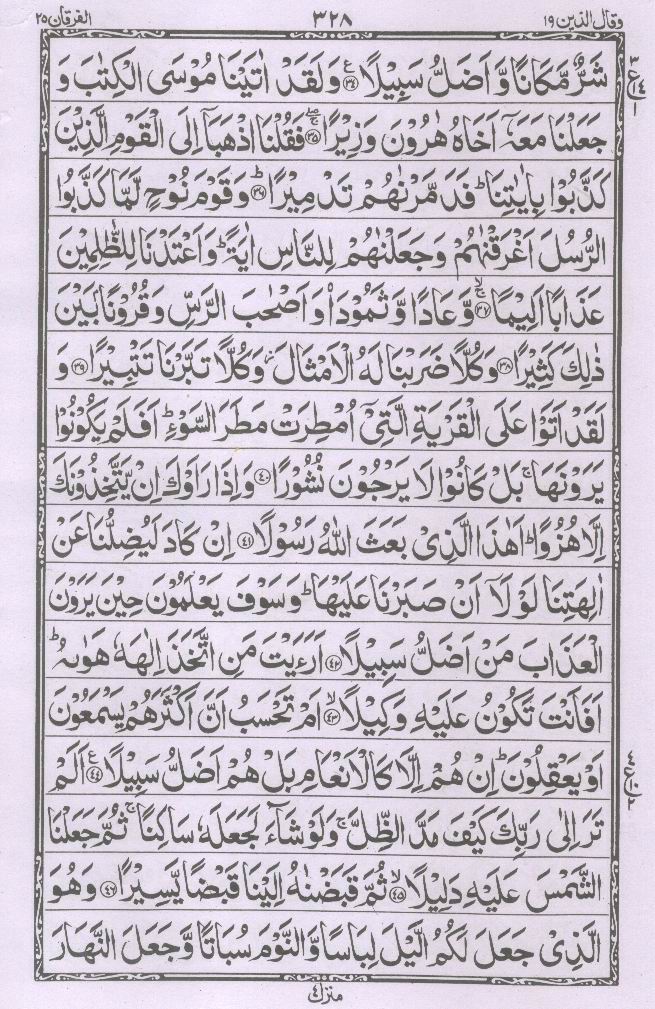 وقال الذين ١٩
٣٢٨
الفرقان ٢٥
شَرٌّ مَّكَانًا وَّ اَضَلُّ سَبِيْلًا ﴿۳۴﴾ وَلَقَدْ اٰتَيْنَا مُوْسَى الْكِتٰبَ وَ
جَعَلْنَا مَعَهٗۤ اَخَاهُ هٰرُوْنَ وَزِيْرًا ﴿۳۵﴾ فَقُلْنَا اذْهَبَاۤ اِلَى الْقَوْمِ الَّذِيْنَ
كَذَّبُوْا بِاٰيٰتِنَا ؕ فَدَمَّرْنٰهُمْ تَدْمِيْرًا ﴿۳۶﴾ وَقَوْمَ نُوْحٍ لَّمَّا كَذَّبُوا
الرُّسُلَ اَغْرَقْنٰهُمْ وَجَعَلْنٰهُمْ لِلنَّاسِ اٰيَةً ؕ وَاَعْتَدْنَا لِلظّٰلِمِيْنَ
عَذَابًا اَلِيْمًا ﴿۳۷﴾ وَّعَادًا وَّثَمُوْدَا۠ وَاَصْحٰبَ الرَّسِّ وَقُرُوْنًۢا بَيْنَ
ذٰلِكَ كَثِيْرًا ﴿۳۸﴾ وَكُلًّا ضَرَبْنَا لَهُ الْاَمْثَالَ ؗ وَكُلًّا تَبَّرْنَا تَتْبِيْرًا ﴿۳۹﴾ وَ
لَقَدْ اَتَوْا عَلَى الْقَرْيَةِ الَّتِيْۤ اُمْطِرَتْ مَطَرَ السَّوْءِ ؕ اَفَلَمْ يَكُوْنُوْا
يَرَوْنَهَا ۚ بَلْ كَانُوْا لَا يَرْجُوْنَ نُشُوْرًا ﴿۴۰﴾ وَاِذَا رَاَوْكَ اِنْ يَّتَّخِذُوْنَكَ
اِلَّا هُزُوًا ؕ اَهٰذَا الَّذِيْ بَعَثَ اللّٰهُ رَسُوْلًا ﴿۴۱﴾ اِنْ كَادَ لَيُضِلُّنَا عَنْ
اٰلِهَتِنَا لَوْلَاۤ اَنْ صَبَرْنَا عَلَيْهَا ؕ وَسَوْفَ يَعْلَمُوْنَ حِيْنَ يَرَوْنَ
الْعَذَابَ مَنْ اَضَلُّ سَبِيْلًا ﴿۴۲﴾ اَرَءَيْتَ مَنِ اتَّخَذَ اِلٰهَهٗ هَوٰىهُ ؕ
اَفَاَنْتَ تَكُوْنُ عَلَيْهِ وَكِيْلًا ﴿۴۳﴾ اَمْ تَحْسَبُ اَنَّ اَكْثَرَهُمْ يَسْمَعُوْنَ
اَوْ يَعْقِلُوْنَ ؕ اِنْ هُمْ اِلَّا كَالْاَنْعَامِ بَلْ هُمْ اَضَلُّ سَبِيْلًا ﴿۴۴﴾ اَلَمْ
تَرَ اِلٰى رَبِّكَ كَيْفَ مَدَّ الظِّلَّ ۚ وَلَوْ شَآءَ لَجَعَلَهٗ سَاكِنًا ۚ ثُمَّ جَعَلْنَا
الشَّمْسَ عَلَيْهِ دَلِيْلًا ﴿۴۵﴾ ثُمَّ قَبَضْنٰهُ اِلَيْنَا قَبْضًا يَّسِيْرًا ﴿۴۶﴾ وَهُوَ
الَّذِيْ جَعَلَ لَكُمُ الَّيْلَ لِبَاسًا وَّالنَّوْمَ سُبَاتًا وَّجَعَلَ النَّهَارَ
منزل ٤